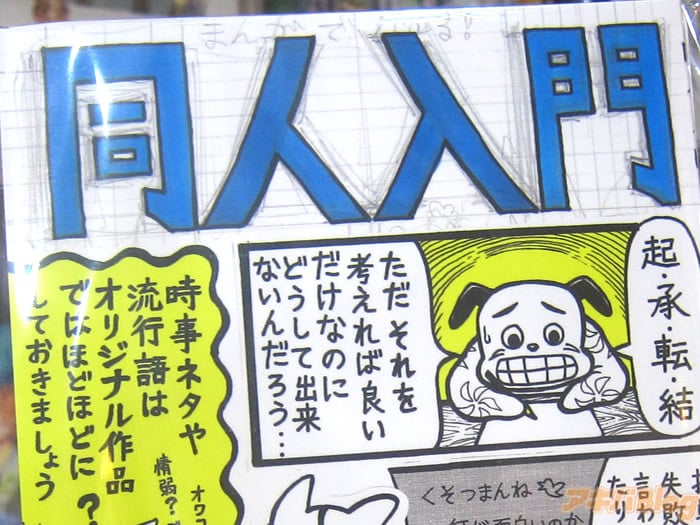 まんがでわかる!
同人入門
起・承・転・結
ただそれを
考えれば良い
だけなのに
どうして出来
ないんだろう…
時事ネタや
流行語は
オリジナル作品
ではほどほどに
しておきましょう
オワコ
情弱?
?
くそつまんね
失敗
言わ
たり
アキバBlog